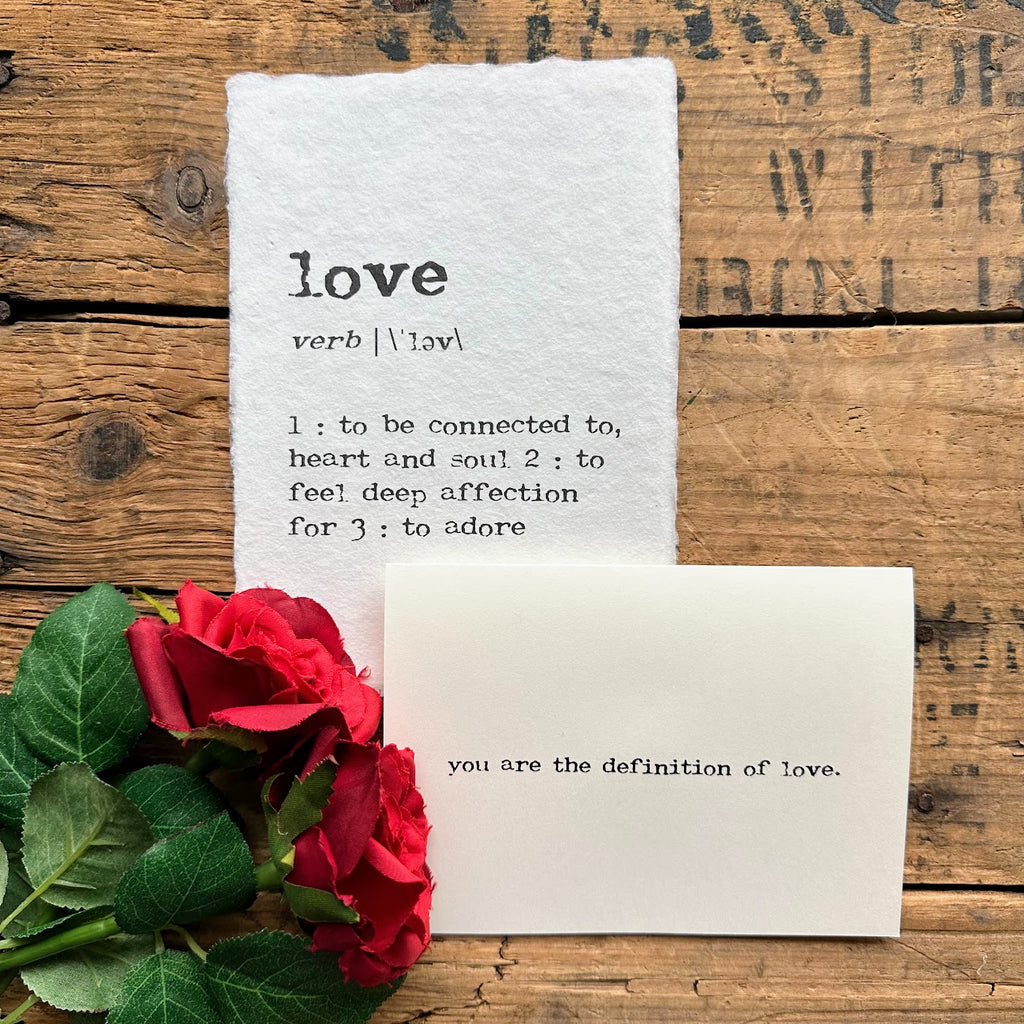 love
verb | \ˈləv\
1 : to be connected to,
heart and soul 2 : to
feel deep affection
for 3 : to adore
you are the definition of love.